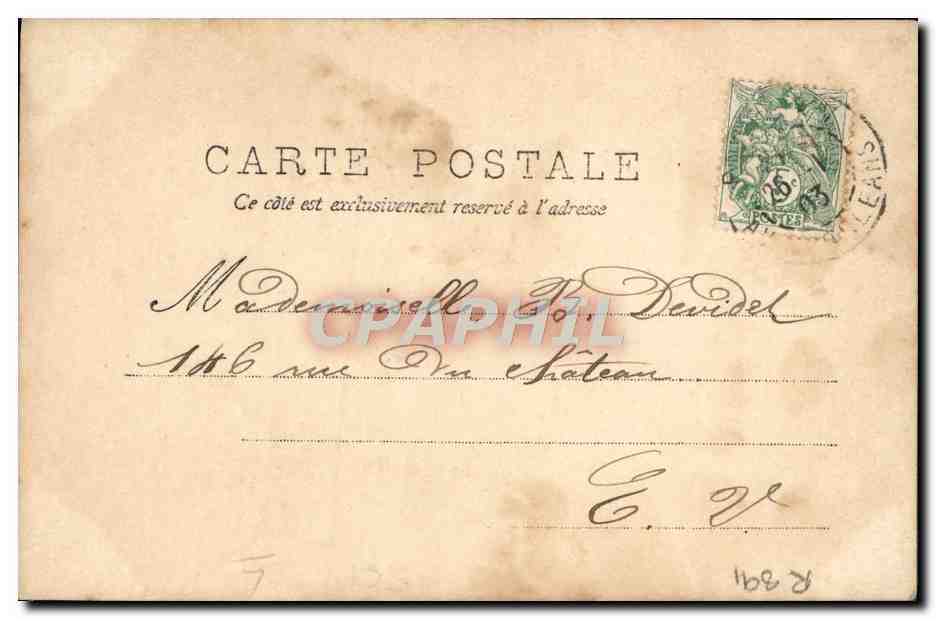 CARTE POSTALE
Ce côté est exclusivement reservé à l'adresse
26
03
POSTES
ORLEANS
Mademoiselle B. Devidet
CPAPHIL
146 rue du Château
E. V.
R 391